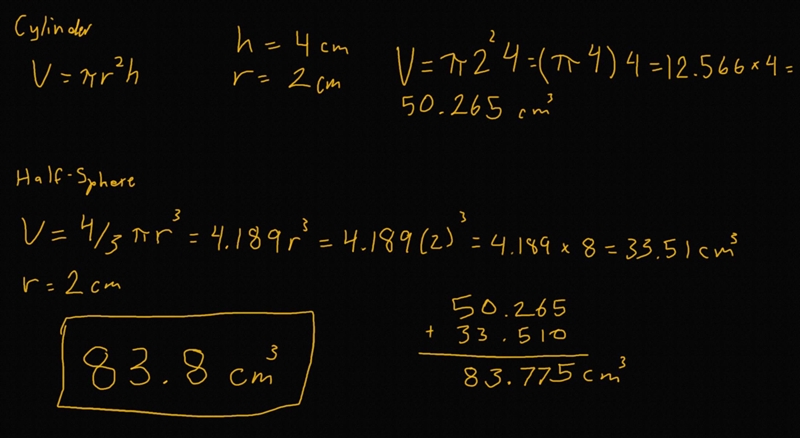 Cylinder
V = πr²h
h = 4 cm
r = 2 cm
V = π2²4 = (π4)4 = 12.566 × 4 =
50.265 cm³
Half-Sphere
V = 4/3 πr³ = 4.189r³ = 4.189(2)³ = 4.189 × 8 = 33.51 cm³
r = 2 cm
83.8 cm³
50.265
+ 33.510
83.775 cm³